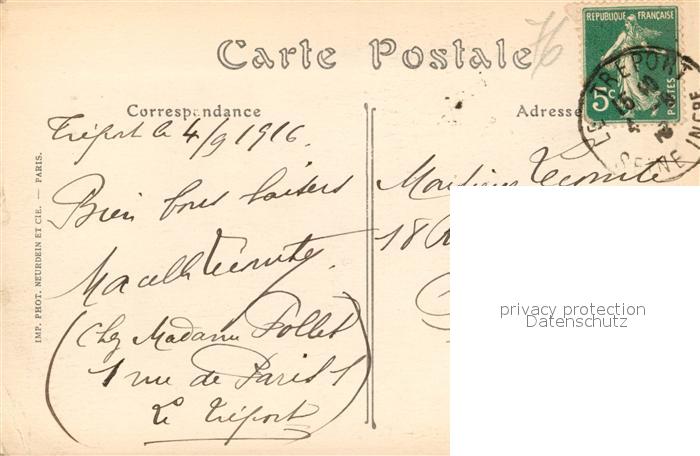 Carte Postale
76
REPUBLIQUE FRANÇAISE
5c
POSTES
LE TREPORT
SEINE INFRE
Correspondance
Adresse
Tréport le 4/9 1916
Bien bons baisers
Marcelle Lecomte
(Chez Madame Follet
1 rue de Paris 1
Le Tréport)
Monsieur Lecomte
18
IMP. PHOT. NEURDEIN ET CIE. — PARIS.
privacy protection
Datenschutz